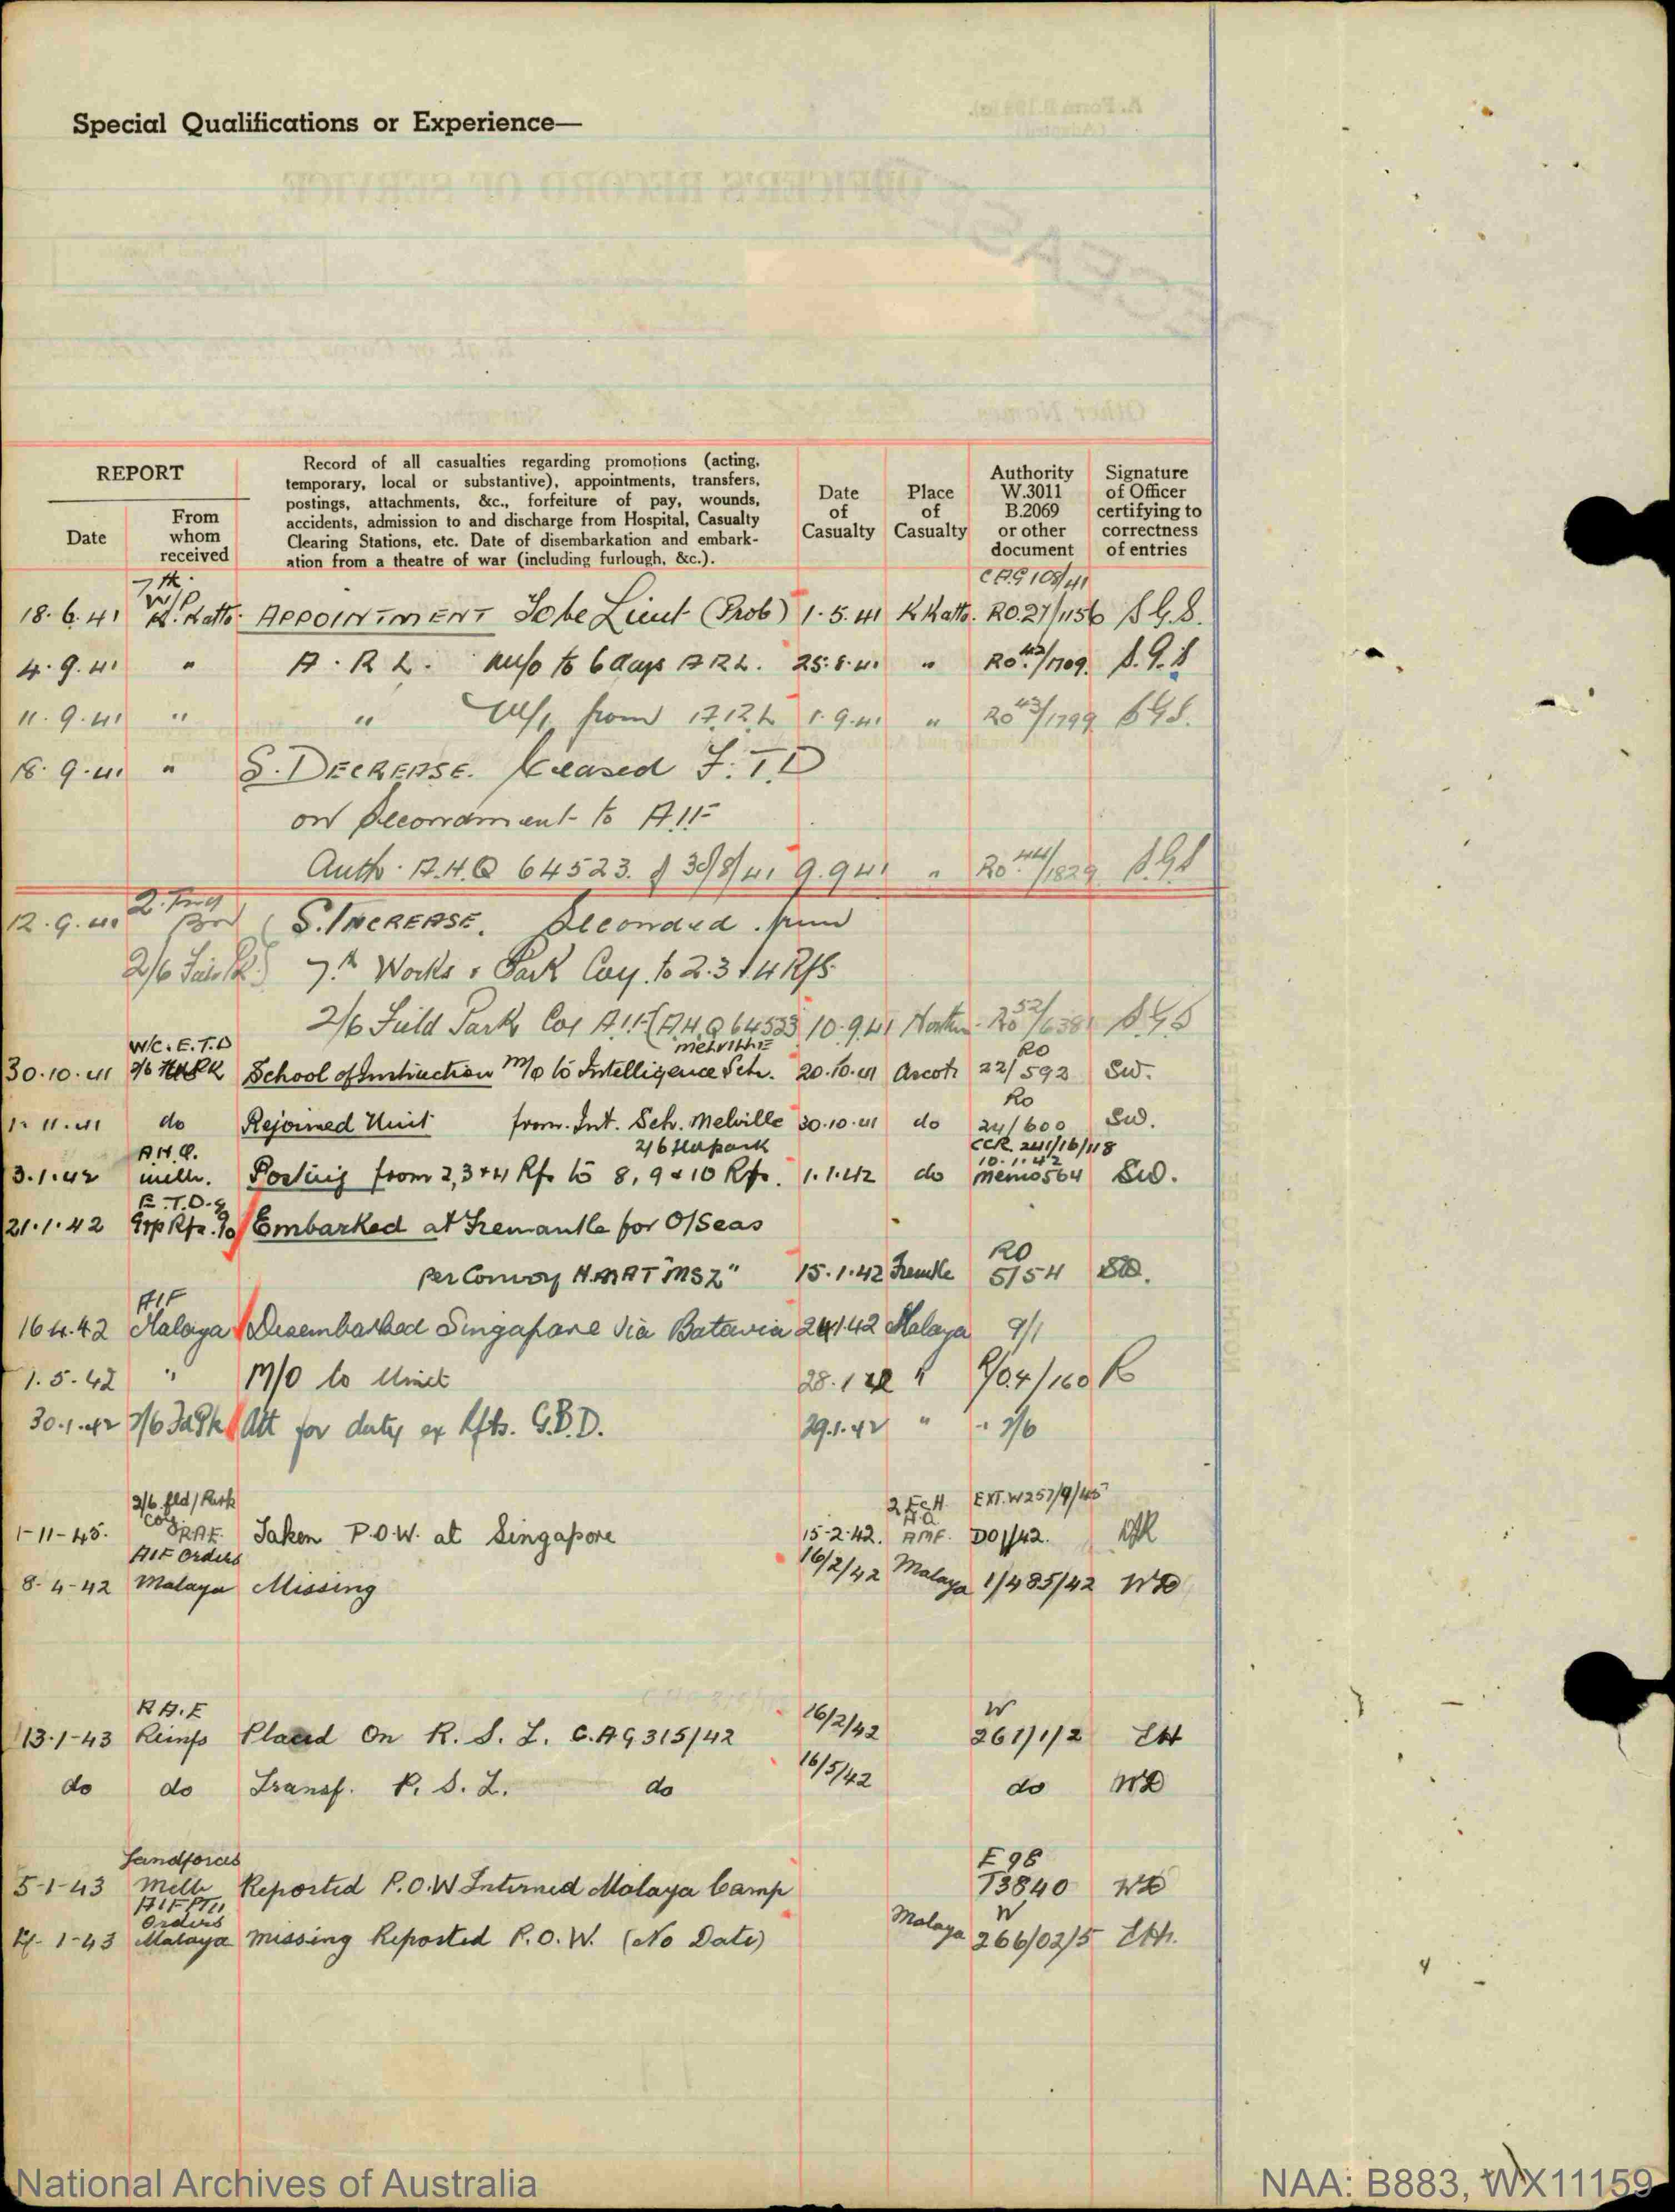 Special Qualifications or Experience—
REPORT
Date
From
whom
received
Record of all casualties regarding promotions (acting,
temporary, local or substantive), appointments, transfers,
postings, attachments, &c., forfeiture of pay, wounds,
accidents, admission to and discharge from Hospital, Casualty
Clearing Stations, etc. Date of disembarkation and embark-
ation from a theatre of war (including furlough, &c.).
Date
of
Casualty
Place
of
Casualty
Authority
W.3011
B.2069
or other
document
Signature
of Officer
certifying to
correctness
of entries
7th
18.6.41 K.Katta. APPOINTMENT To be Lieut (Prob) 1.5.41 K Katta. RO.27/1156
4.9.41 " A.R.L. to 6 days ARL. 25.8.41 " RO 42/1709
11.9.41 " " from 1.9.41 " RO 43/1799
18.9.41 " S. DECREASE. F.T.D
on secondment to AIF
Auth. A.H.Q 64523. 30/8/41 9.9.41 " RO 44/1829
12.9.41 S. INCREASE. Seconded from
7th Works & Park Coy. to 2.3 & 4 Rfs
2/6 Field Park Coy AIF (AHQ 64523 10.9.41
W/C.E.T.D
30.10.41 School of Instruction M/O to Intelligence Sch. Melville 20.10.41 Ascot RO 22/592 SW.
1.11.41 do Rejoined Unit from Int. Sch. Melville 30.10.41 do RO 24/600 SW.
A.H.Q. 2/6 CCR 241/16/118
3.1.42 melb. Posting from 2,3+4 Rfs to 8, 9 & 10 Rfs. 1.1.42 do 10.1.42 memo 564 SW.
E.T.D.
21.1.42 Embarked at Fremantle for O/Seas
per Convoy H.M.A.T "MS2" 15.1.42 Fremtle RO 5/54
AIF
16.4.42 Malaya Disembarked Singapore via Batavia 24.1.42 Malaya 9/1
1.5.42 " M/O to Unit 28.1.42 "
30.1.42 2/6 Fd Pk Att for duty ex Rfts. G.B.D. 29.1.42 " " 2/6
2/6 fld/Park
Coy 2 Ech EXT. W257/9/45
1-11-45. RAE Taken P.O.W. at Singapore 15-2-42. AMF. DO1/42.
AIF Orders
8-4-42 Malaya Missing 16/2/42 Malaya 1/485/42
RAE
13-1-43 Reinfs Placed On R. S. L. C.A.G 315/42 16/2/42 W 261/1/2
do do Transf. P. S. L. do 16/5/42 do
Landforces
5-1-43 Melb Reported P.O.W Interned Malaya Camp E98 T3840
Orders
1-43 Malaya missing Reported P.O.W. (No Date) Malaya W 266/02/5
National Archives of Australia
NAA: B883, WX11159